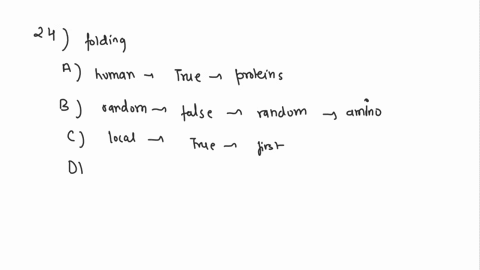 24) folding
A) human → True → proteins
B) random → false → random → amino
C) local → True → first
D)